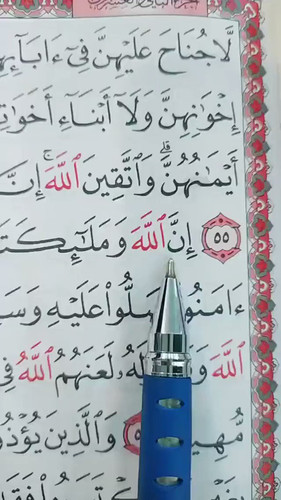 لَّا جُنَاحَ عَلَيْهِنَّ فِىٓ ءَابَآئِهِ
إِخْوَٰنِهِنَّ وَلَآ أَبْنَآءِ أَخَوَٰتِ
أَيْمَٰنُهُنَّ ۗ وَٱتَّقِينَ ٱللَّهَ ۚ إِنَّ
٥٥ إِنَّ ٱللَّهَ وَمَلَٰٓئِكَتَ
ءَامَنُوا۟ صَلُّوا۟ عَلَيْهِ وَسَ
ٱللَّهَ لَعَنَهُمُ ٱللَّهُ فِى
مُّهِي وَٱلَّذِينَ يُؤْذُ